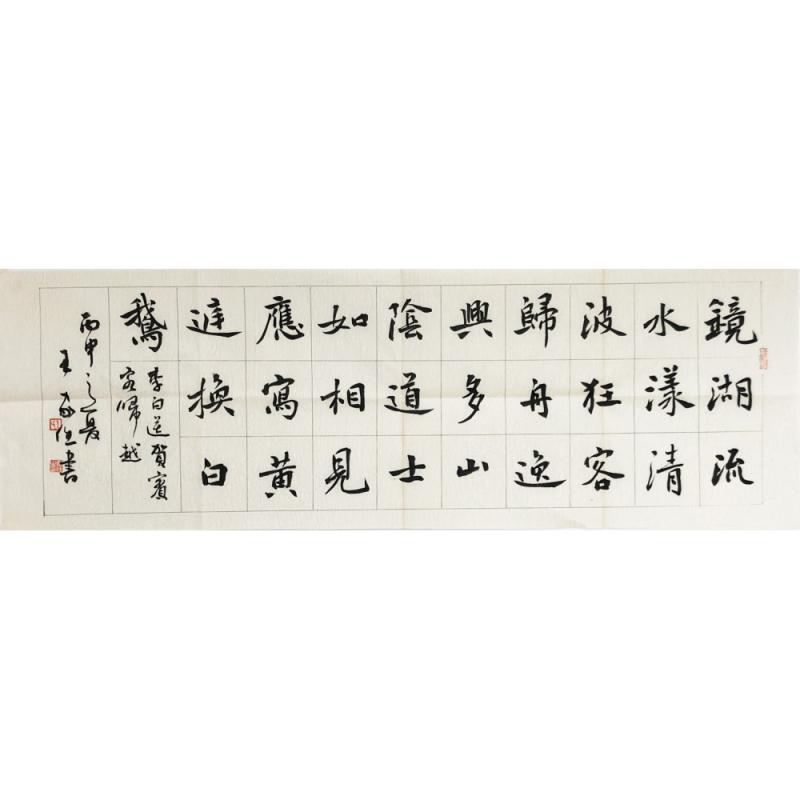 鏡湖流
水漾清
波狂客
歸舟逸
興多山
陰道士
如相見
應寫黃
庭換白
鵝
李白送賀賓
客歸越
丙申之夏
王書